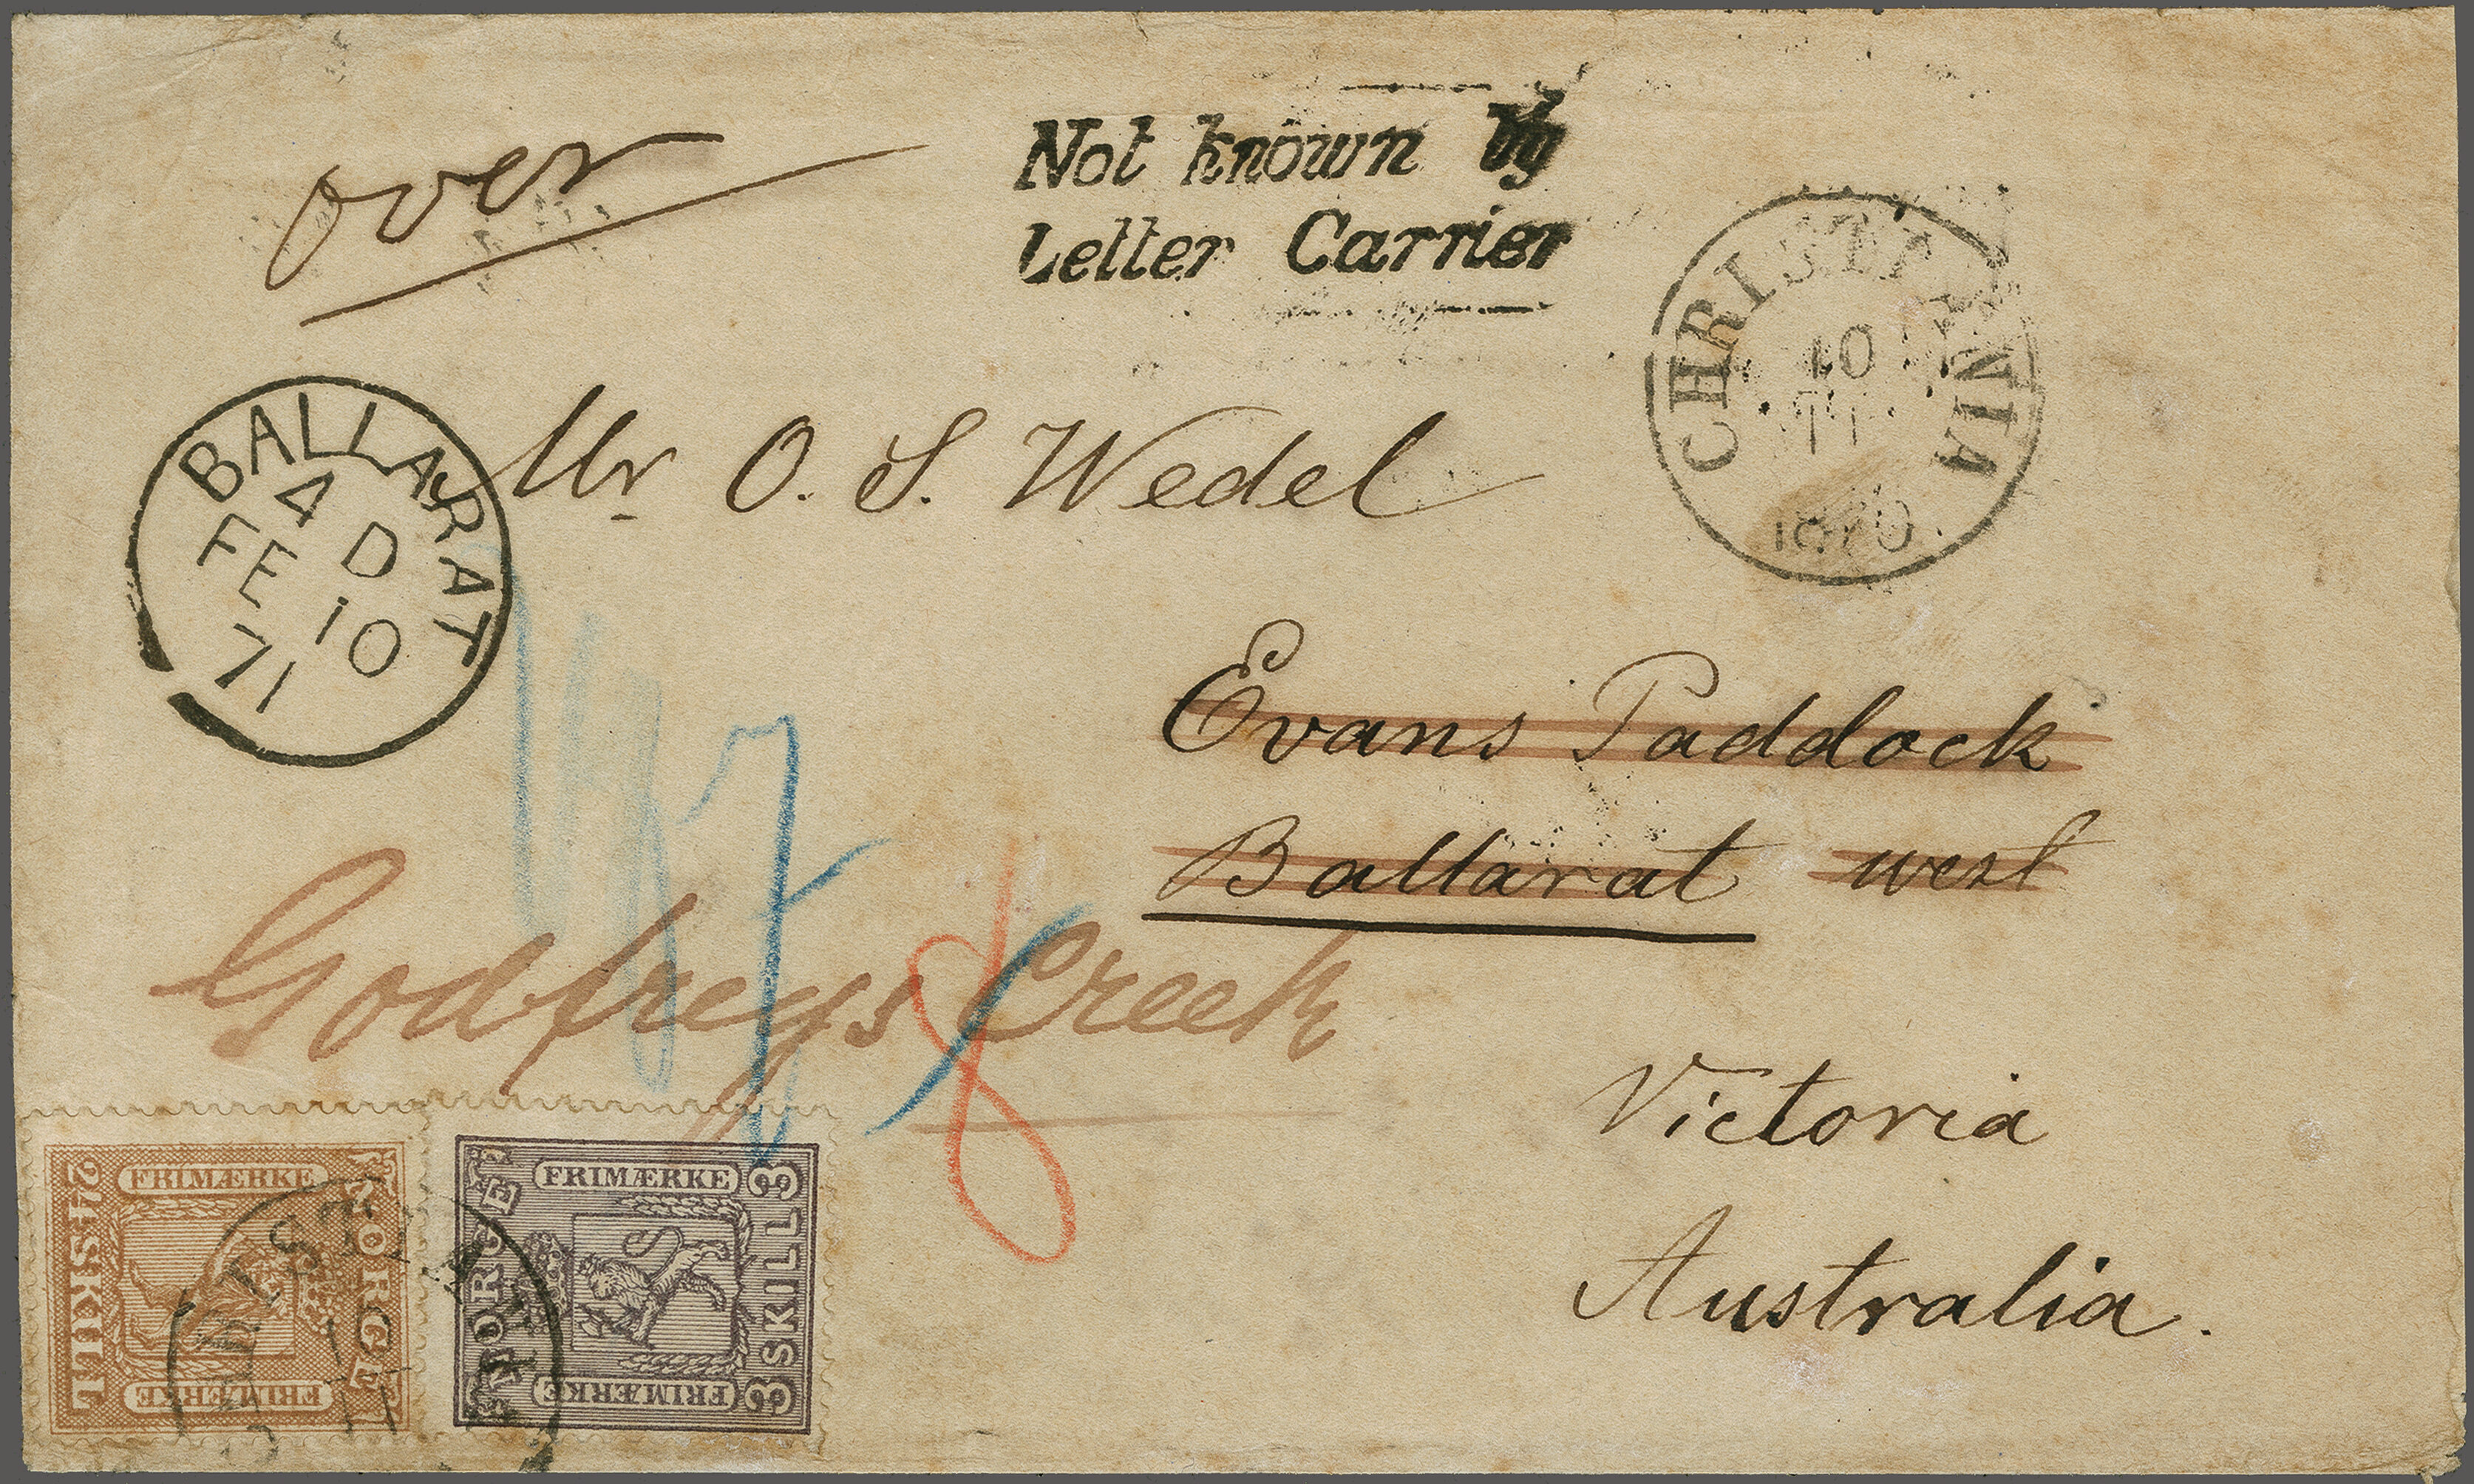 over
Not known by
Letter Carrier
CHRISTIANIA
10
11
1870
BALLARAT
4 D
FE 10
71
Mr O. S. Wedel
Evans Paddock
Ballarat west
Godfreys Creek
8
Victoria
Australia.
FRIMÆRKE
24 SKILL
NORGE
FRIMÆRKE
FRIMÆRKE
NORGE
3 SKILL 3
FRIMÆRKE
CHRISTIANIA
10
11